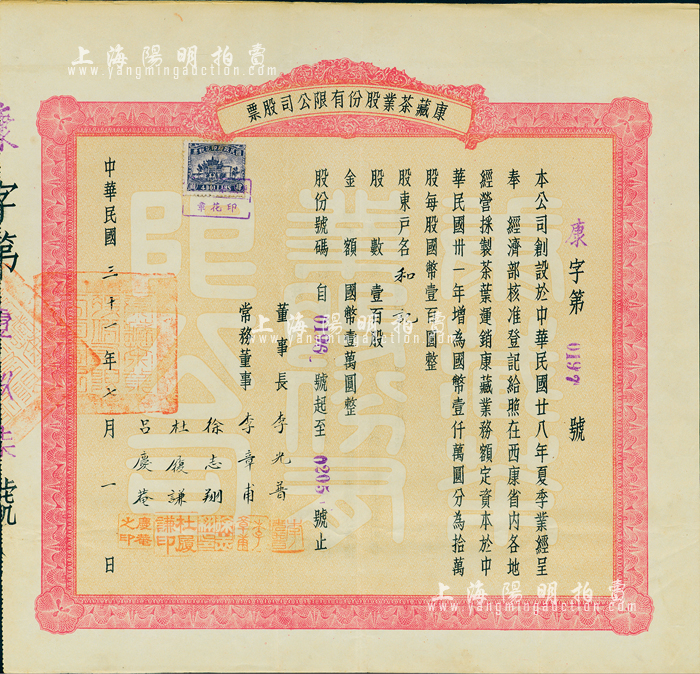 上海陽明拍賣
www.yangmingauction.com
康藏茶業股份有限公司股票
康字第0197號
本公司創設於中華民國廿八年夏季業經呈
奉 經濟部核准登記給照在西康省內各地
經營採製茶葉運銷康藏業務額定資本於中
華民國卅一年增為國幣壹仟萬圓分為拾萬
股每股國幣壹百圓整
股東戶名 和記
股數 壹百股
金額 國幣壹萬圓整
股份號碼 自 號起至 號止
董事長 李光普
常務董事 李章甫
徐志翔
杜履謙
呂慶菴
中華民國三十一年七月一日
印花票
4 DOLLARS
杜履謙印
上海陽明拍賣
www.yangmingauction.com
上海陽明拍賣
www.yangmingauction.com